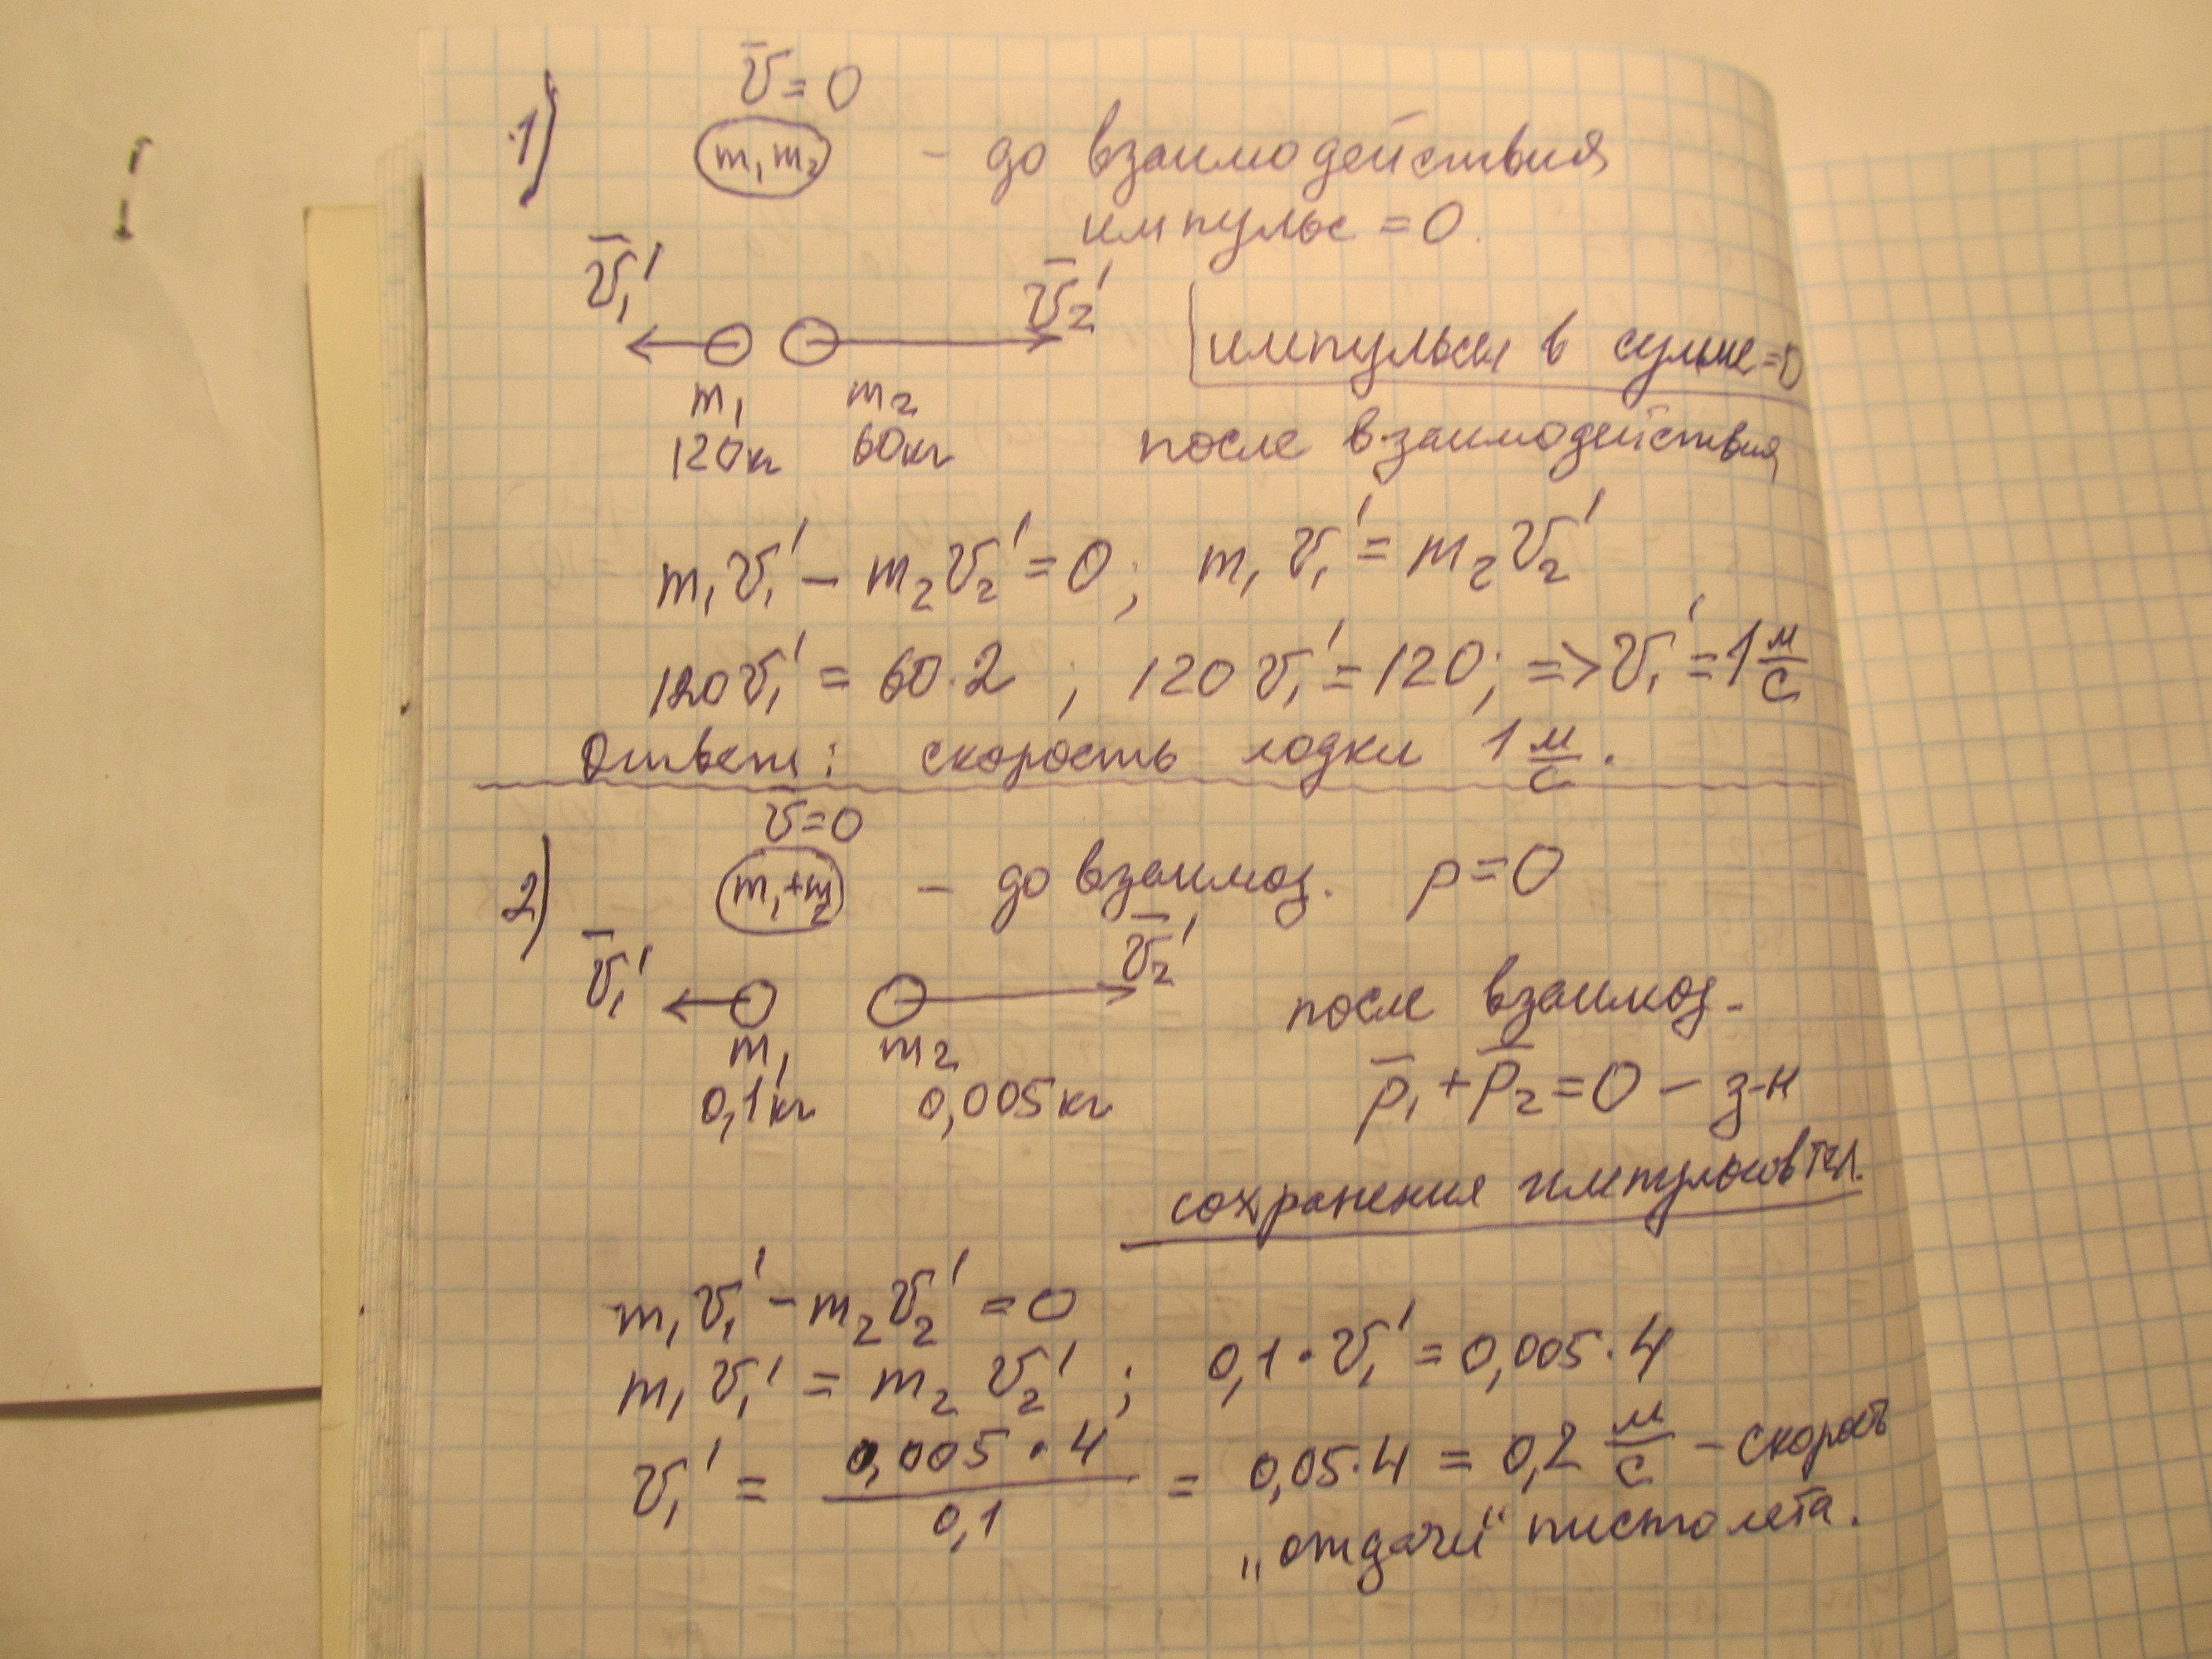 1) v̅ = 0
m₁ m₂ – до взаимодействия
импульс = 0.
v̅₁′ v̅₂′
импульсы в сумме = 0
m₁ m₂
120кг 60кг после взаимодействия
m₁v₁′ – m₂v₂′ = 0; m₁v₁′ = m₂v₂′
120v₁′ = 60·2 ; 120v₁′ = 120; => v₁′ = 1 м/с
Ответ: скорость лодки 1 м/с.
v̅ = 0
2) m₁+m₂ – до взаимод. p = 0
v̅₁′ v̅₂′
после взаимод.
m₁ m₂
0,1кг 0,005кг p̅₁ + p̅₂ = 0 – з-н
сохранения импульсов тел.
m₁v₁′ – m₂v₂′ = 0
m₁v₁′ = m₂v₂′ ; 0,1·v₁′ = 0,005·4
v₁′ = 0,005·4 / 0,1 = 0,05·4 = 0,2 м/с – скорость
„отдачи“ пистолета.